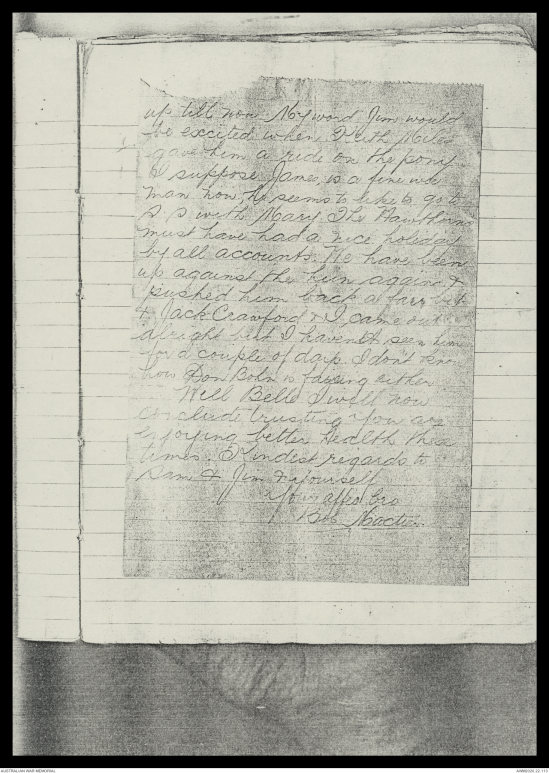 up till now. My word Jim would
be excited when Keith Miles
gave him a ride on the pony
I suppose James, is a fine wee
man now, he seems to like to go to
S, S with Mary. The Hawthorns
must have had a nice holiday
by all accounts. We have been
up against the hun again &
pushed him back a farr bit
& Jack Crawford & I came out
alright but I havent seen him
for a couple of days. I don't know
how Don is faring either
Well Belle I will now
conclude trusting you are
enjoying better health these
times. Kindest regards to
Sam & Jim & yourself
Your affec bro
Bob Mactier
AUSTRALIAN WAR MEMORIAL